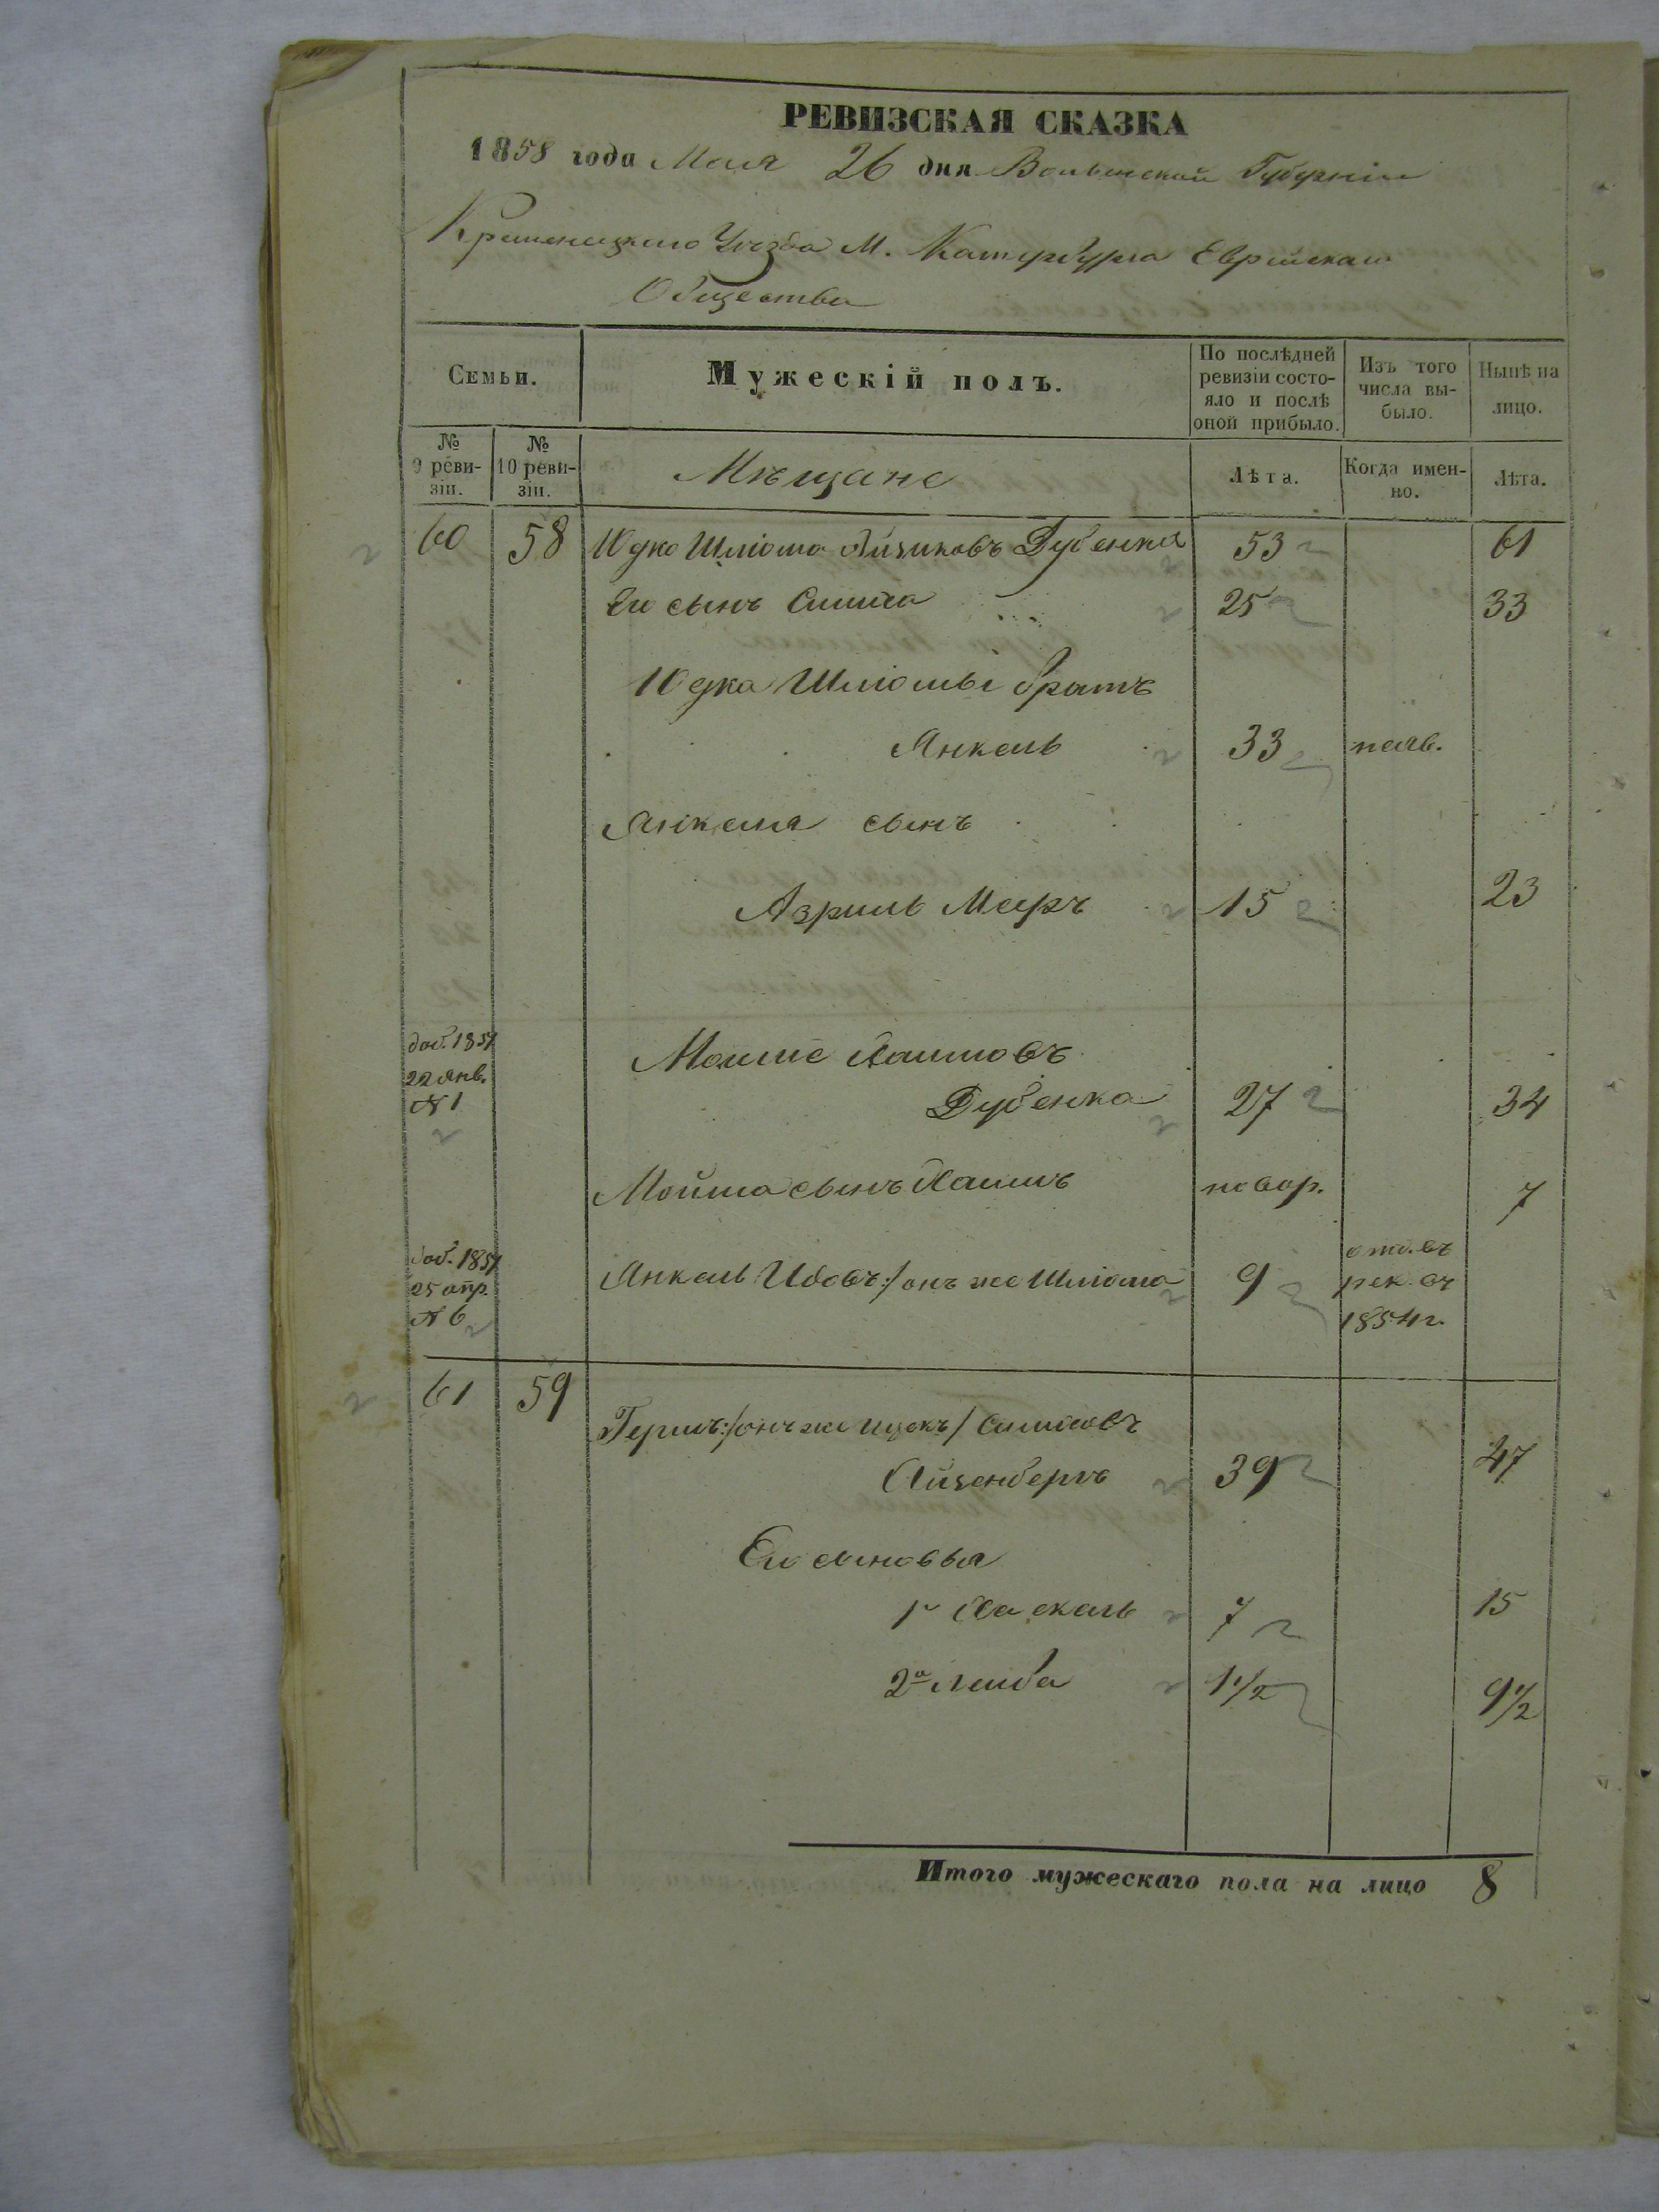 РЕВИЗСКАЯ СКАЗКА
1858 года Мая 26 дня Волынской Губерніи
Кременецкаго Уѣзда М. Катербурга Еврейскаго
Общества
Семьи.
Мужескій полъ.
По послѣдней ревизіи состояло и послѣ оной прибыло.
Изъ того числа выбыло.
Нынѣ на лицо.
№ 9 ревизіи.
№ 10 ревизіи.
Мѣщане
Лѣта.
Когда именно.
Лѣта.
60 58 Юдко Шліома Айзиковъ Дубенка 53 61
Его сынъ Симха 25 33
Юдка Шліомы братъ
Янкель 33 неяв.
Янкеля сынъ
Азриль Мееръ 15 23
доб. 1851
22 янв.
№ 1
Мошие Хаимовъ
Дубенка 27 34
Мойша сынъ Хаимъ новор. 7
доб. 1851
25 апр.
№ 6
Янкель :/онъ же Шліома 9 отд. въ
рек. въ
1854 г.
61 59
Гершъ:/онъ же Ицекъ/ Симховъ
Айзенбергъ 39 47
Его сыновья
1й Хаскель 7 15
2й Лейба 1 1/2 9 1/2
Итого мужескаго пола на лицо 8